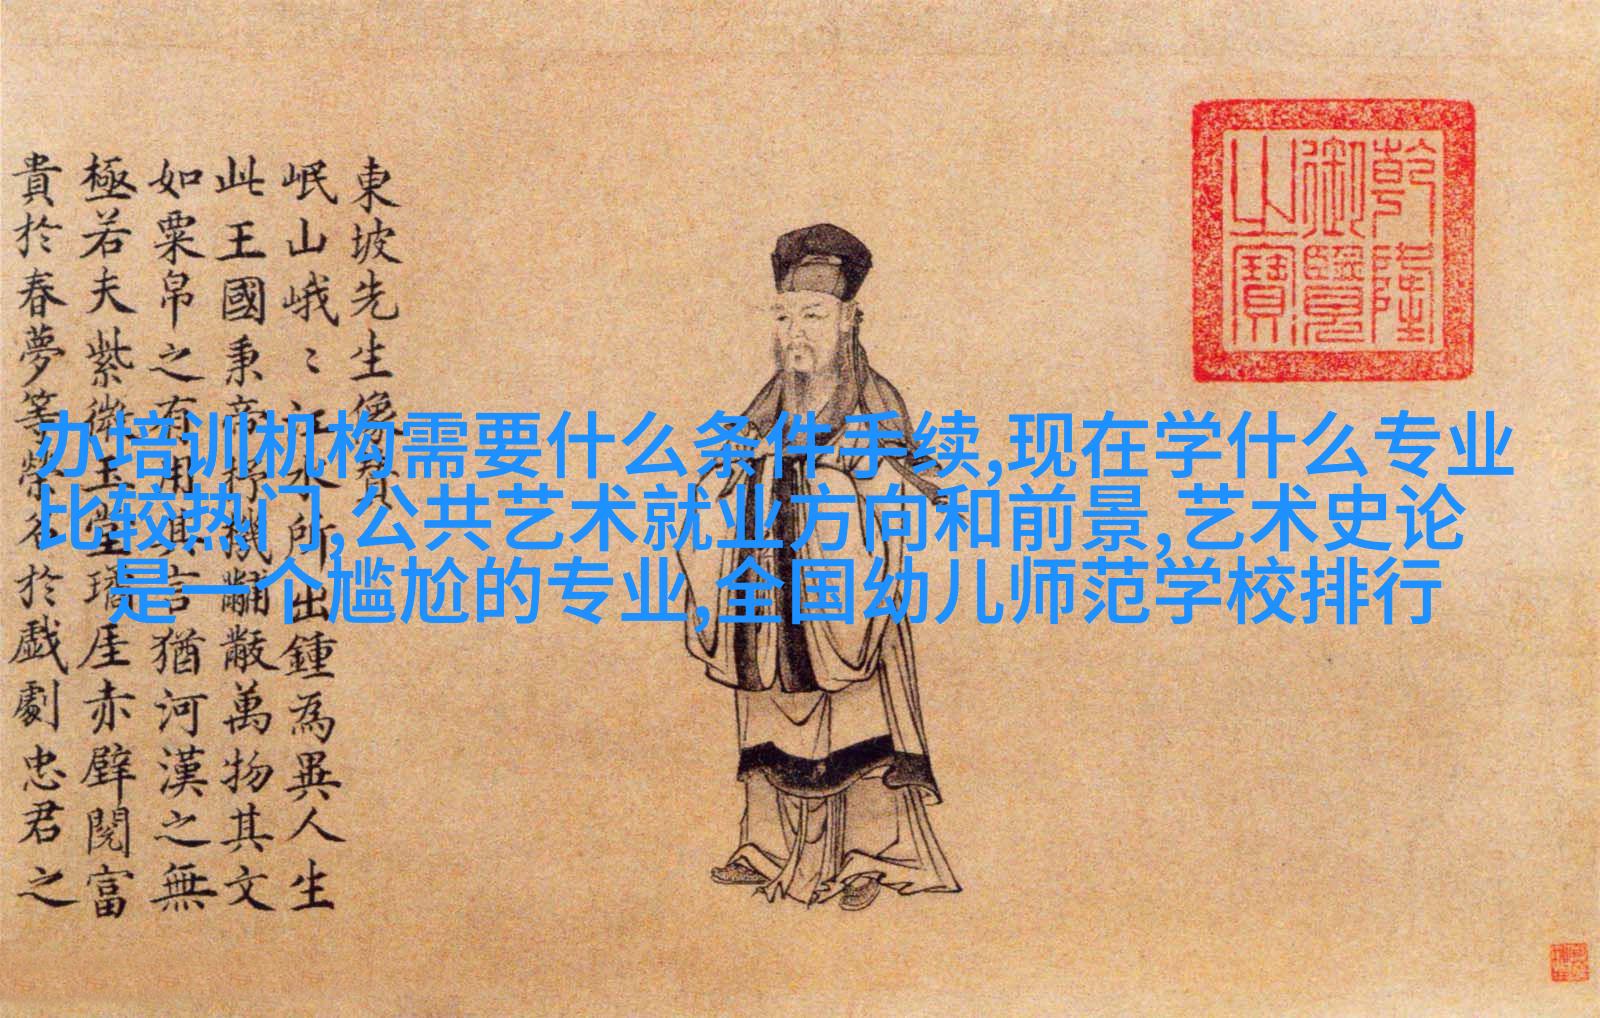 東坡先生像贊
岷山峨〻江水所出鍾為異人生
此王國秉帝杼機黼黻萬物其文
如粟帛之有用其言猶河漢之無
極若夫紫微玉堂瓊厓赤壁閱富
貴於春夢等榮名於戲劇忠君之
乾隆
御覽
之寶
办培训机构需要什么条件手续,现在学什么专业
比较热门,公共艺术就业方向和前景,艺术史论
是一个尴尬的专业,全国幼儿师范学校排行